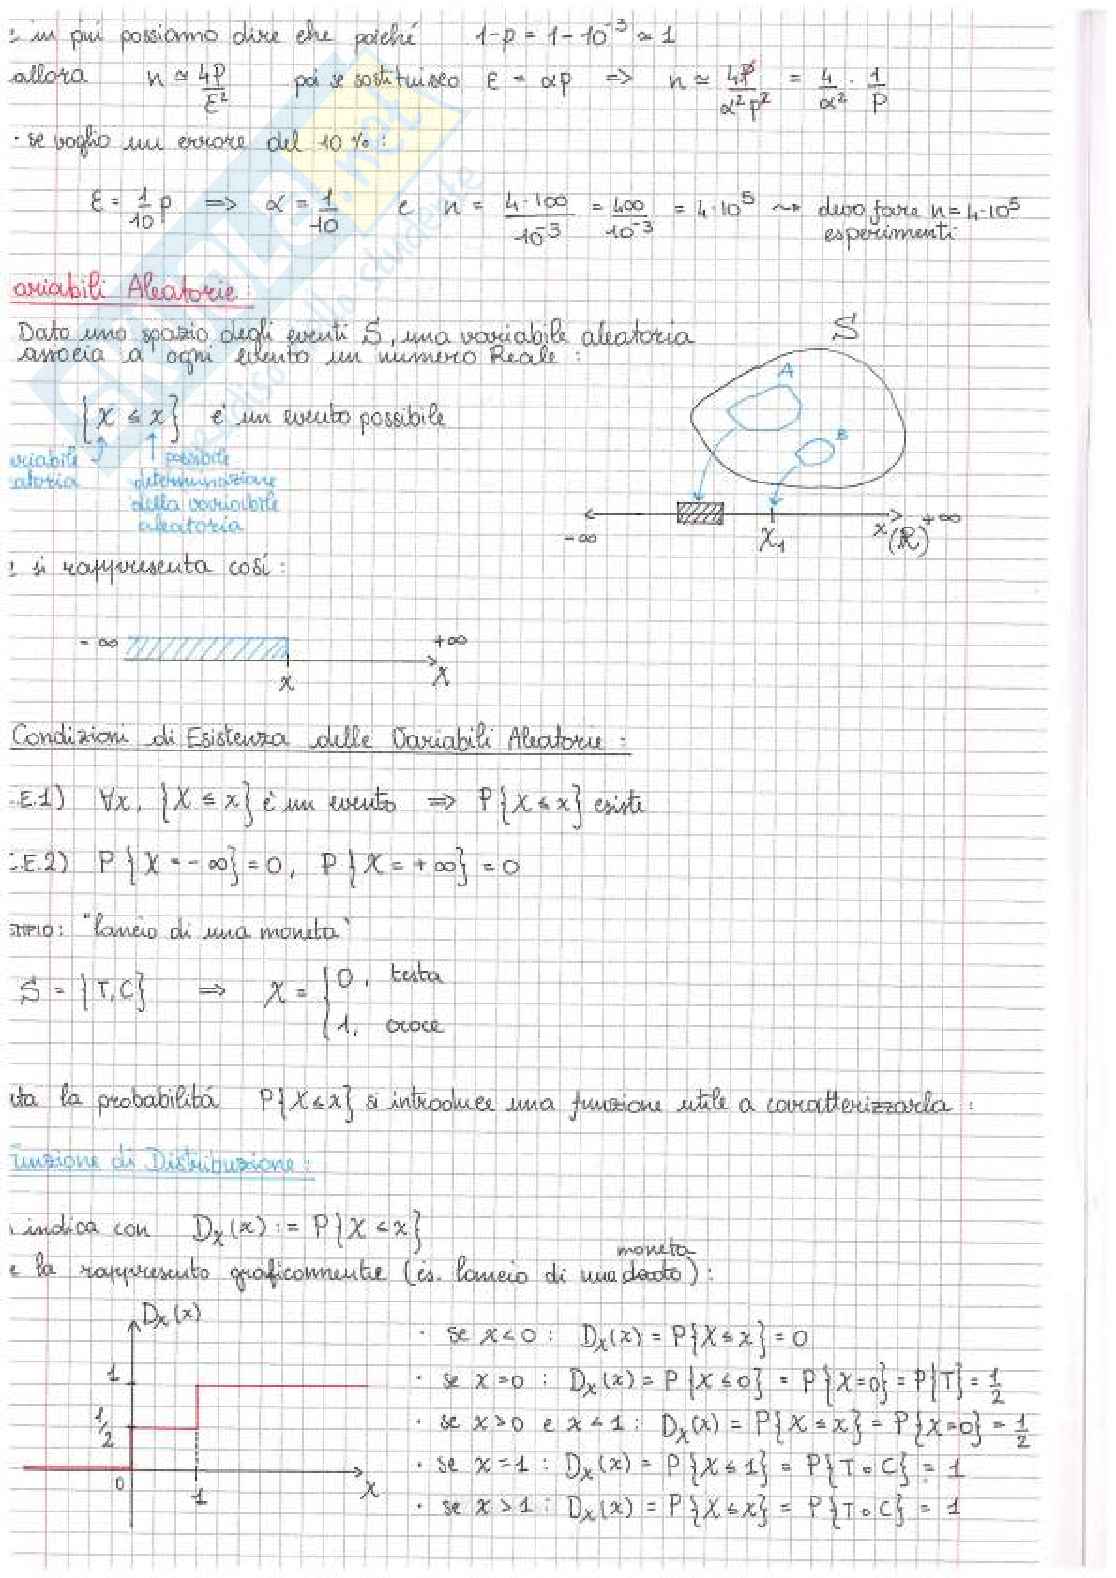 : in più possiamo dire che poiché 1-p = 1-10⁻³ ≃ 1
allora n ≃ 4p/ε² poi se sostituisco ε = αp => n ≃ 4p/α²p² = 4/α² · 1/p
· se voglio un errore del 10%:
ε = 1/10 p => α = 1/10 e n = 4·100/10⁻³ = 400/10⁻³ = 4·10⁵ ⇝ devo fare n=4·10⁵
esperimenti
ariabili Aleatorie:
Dato uno spazio degli eventi S, una variabile aleatoria
associa a ogni evento un numero Reale:
S
A
B
{X ≤ x} è un evento possibile
ariabile
atoria
possibile
determinazione
della variabile
aleatoria
-∞ X₁ x(ℝ) +∞
: si rappresenta così:
-∞ +∞
x X
Condizioni di Esistenza delle Variabili Aleatorie:
.E.1) ∀x, {X ≤ x} è un evento => P{X ≤ x} esiste
.E.2) P{X = -∞} = 0, P{X = +∞} = 0
EMPIO: "lancio di una moneta"
S = {T,C} => X = {0, testa
1, croce
ta la probabilitá P{X≤x} si introduce una funzione utile a caratterizzarla:
Funzione di Distribuzione:
indica con Dₓ(x) := P{X ≤ x}
moneta
e la rappresento graficamente (es. lancio di una dado):
Dₓ(x)
1
1/2
0
1
x
· se x<0 : Dₓ(x) = P{X≤x} = 0
· se x=0 : Dₓ(x) = P{X≤0} = P{X=0} = P{T} = 1/2
· se x>0 e x<1 : Dₓ(x) = P{X≤x} = P{X=0} = 1/2
· se x=1 : Dₓ(x) = P{X≤1} = P{T o C} = 1
· se x>1 : Dₓ(x) = P{X≤x} = P{T o C} = 1